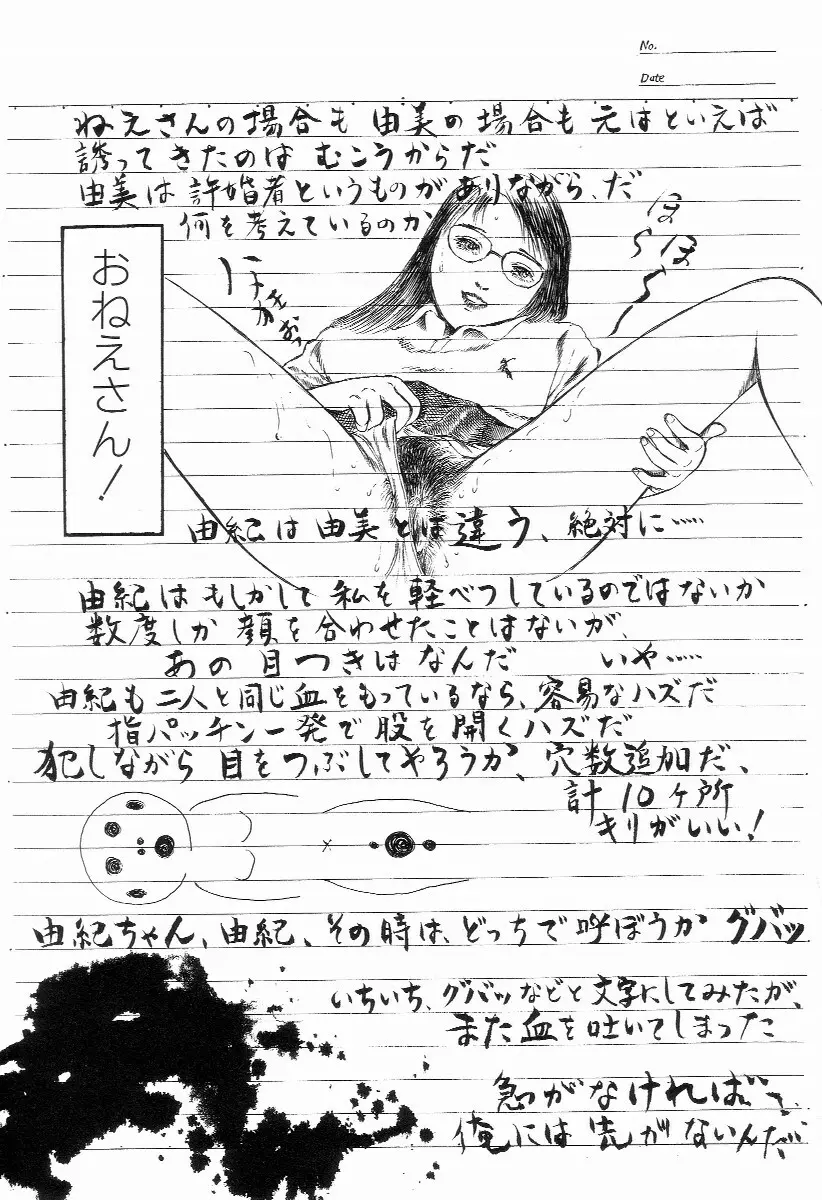 No.
Date
ねえさんの場合も 由美の場合も 元はといえば
誘ってきたのは むこうからだ
由美は許婚者というものがありながら、だ
何を考えているのか
おねえさん!
由紀は由美とは違う、絶対に……
由紀はもしかして 私を軽べつしているのではないか
数度しか 顔を合わせたことはないが、
あの目つきはなんだ いや……
由紀も二人と同じ血をもっているなら、容易なハズだ
指パッチン一発で股を開くハズだ
犯しながら 目をつぶしてやろうか、穴数追加だ、
計10ヶ所
キリがいい!
由紀ちゃん、由紀、その時は、どっちで呼ぼうか グバッ
いちいち、グバッなどと文字にしてみたが、
また血を吐いてしまった
急がなければ…
俺には先がないんだ…